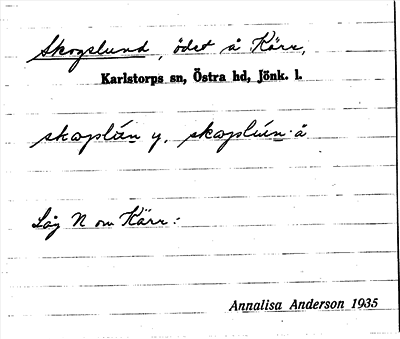 Skogslund, ödet å Kärr,
Karlstorps sn, Östra hd, Jönk. l.
skogslún y. skogslún å
Låg N om Kärr.
Annalisa Anderson 1935